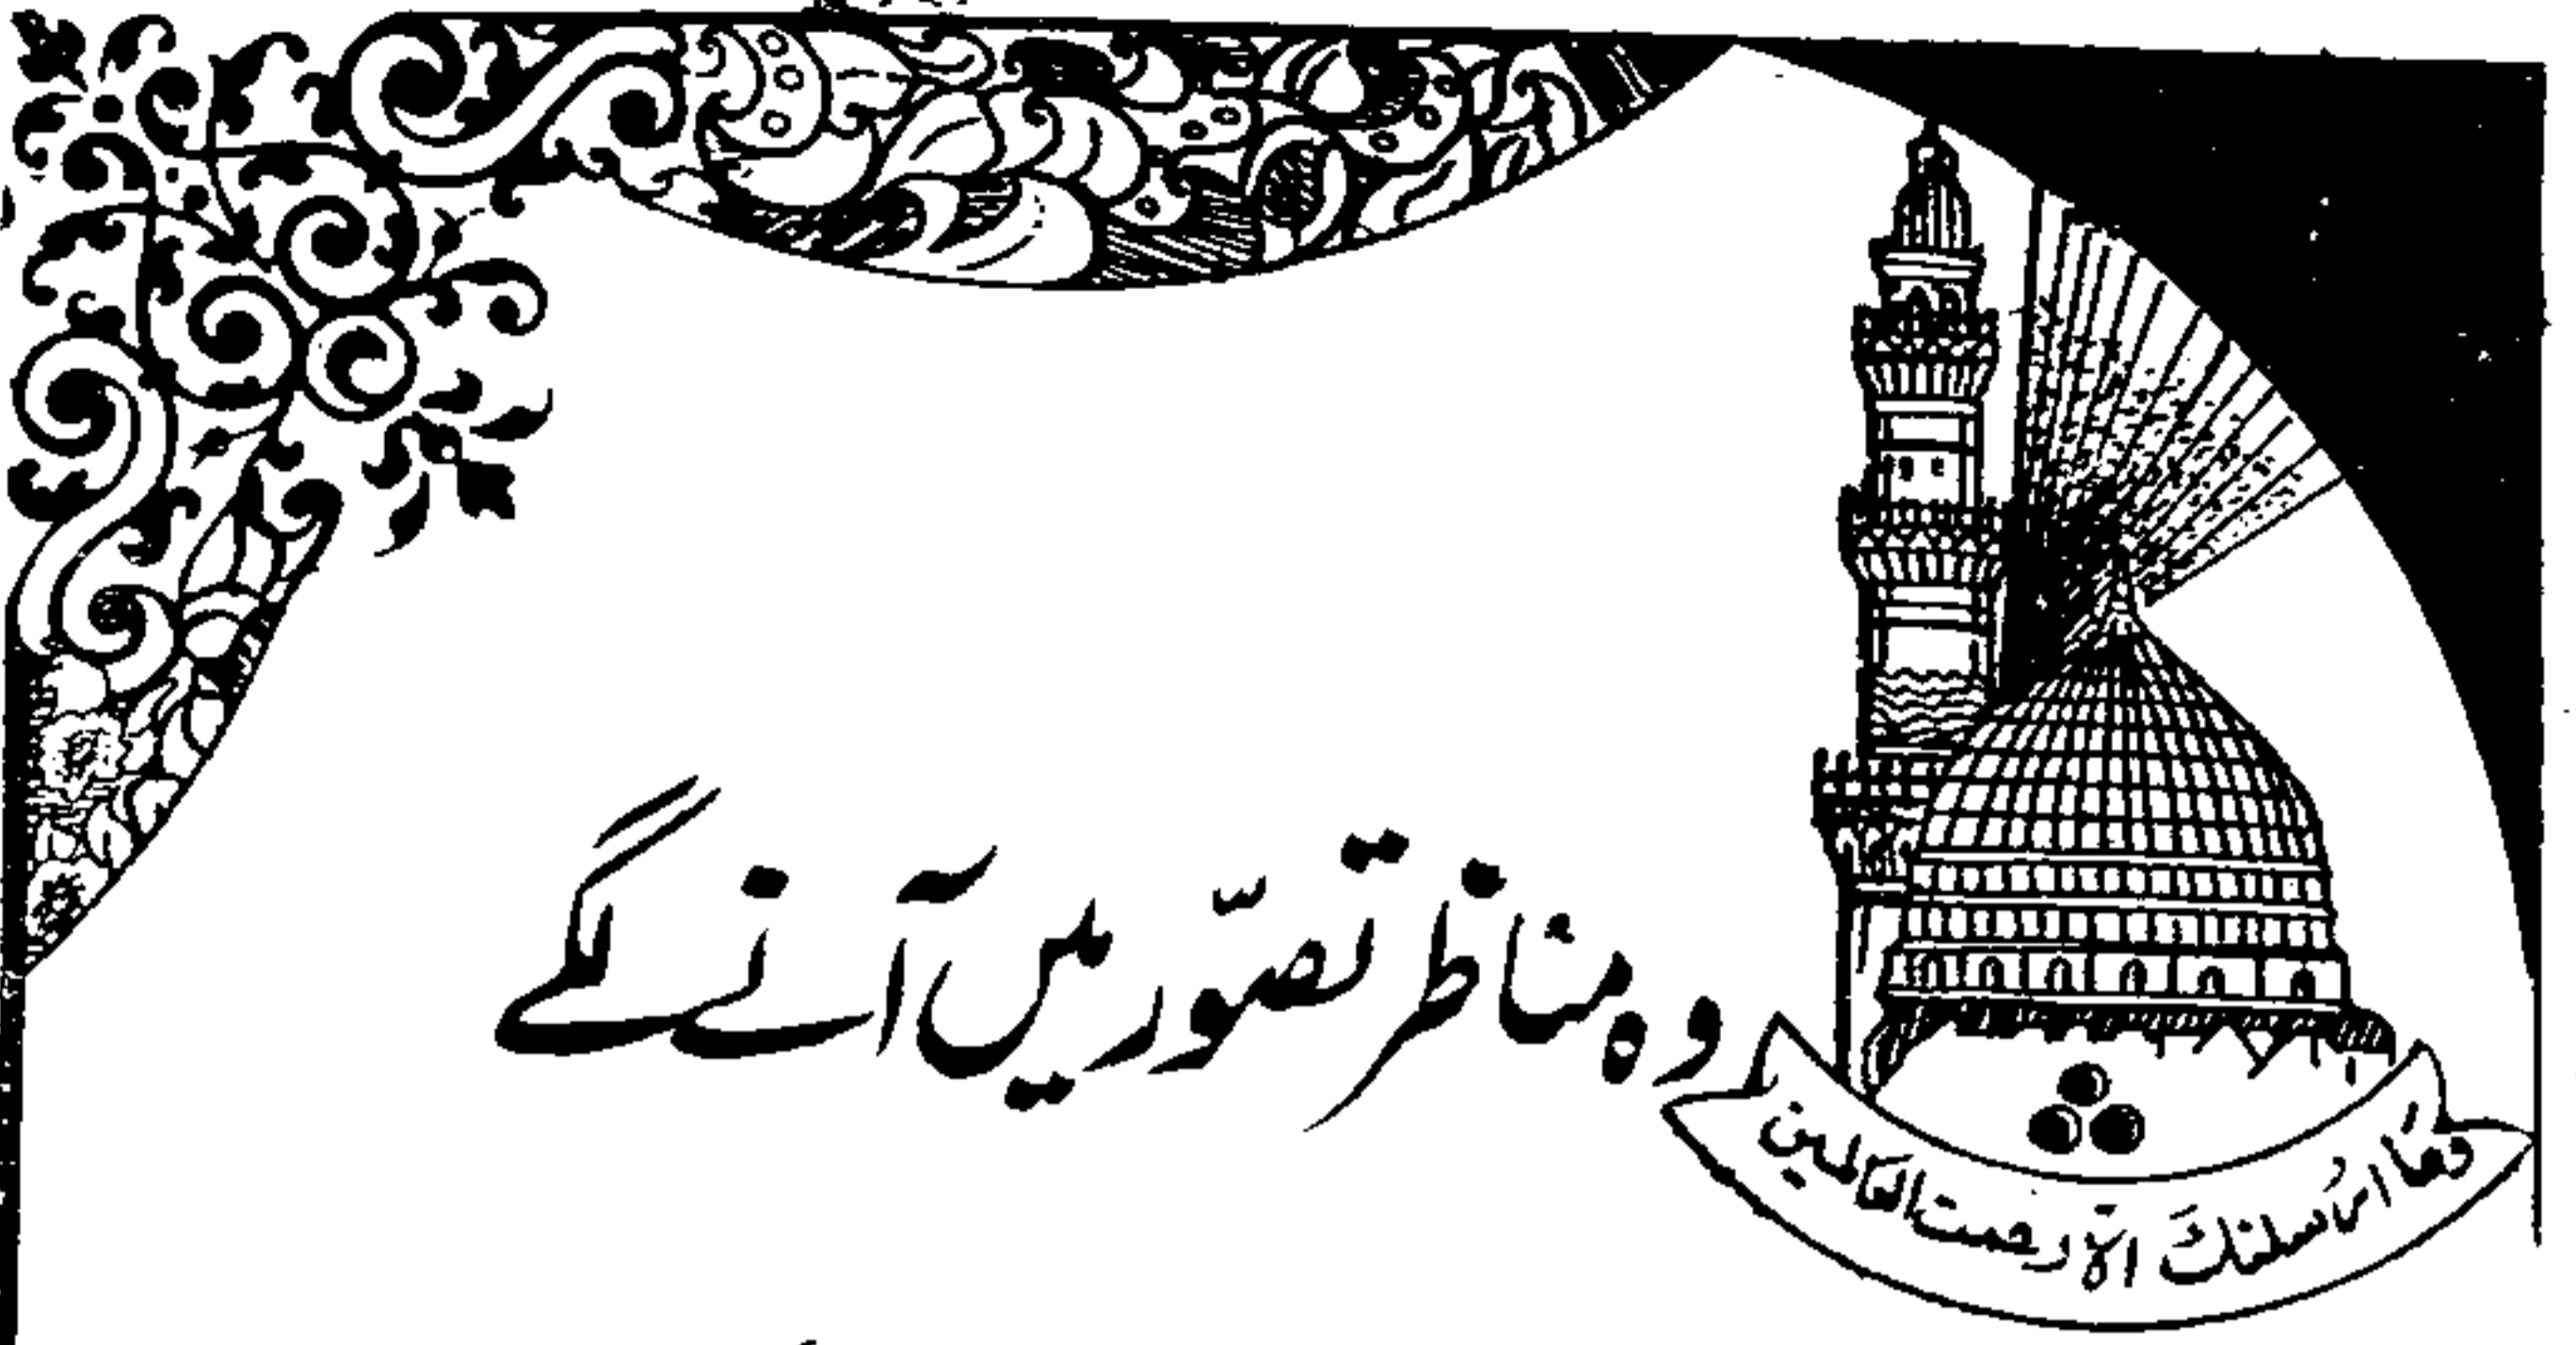 وہ مناظر تصوّر میں آنے لگے
وما ارسلنٰک الّا رحمت العالمین